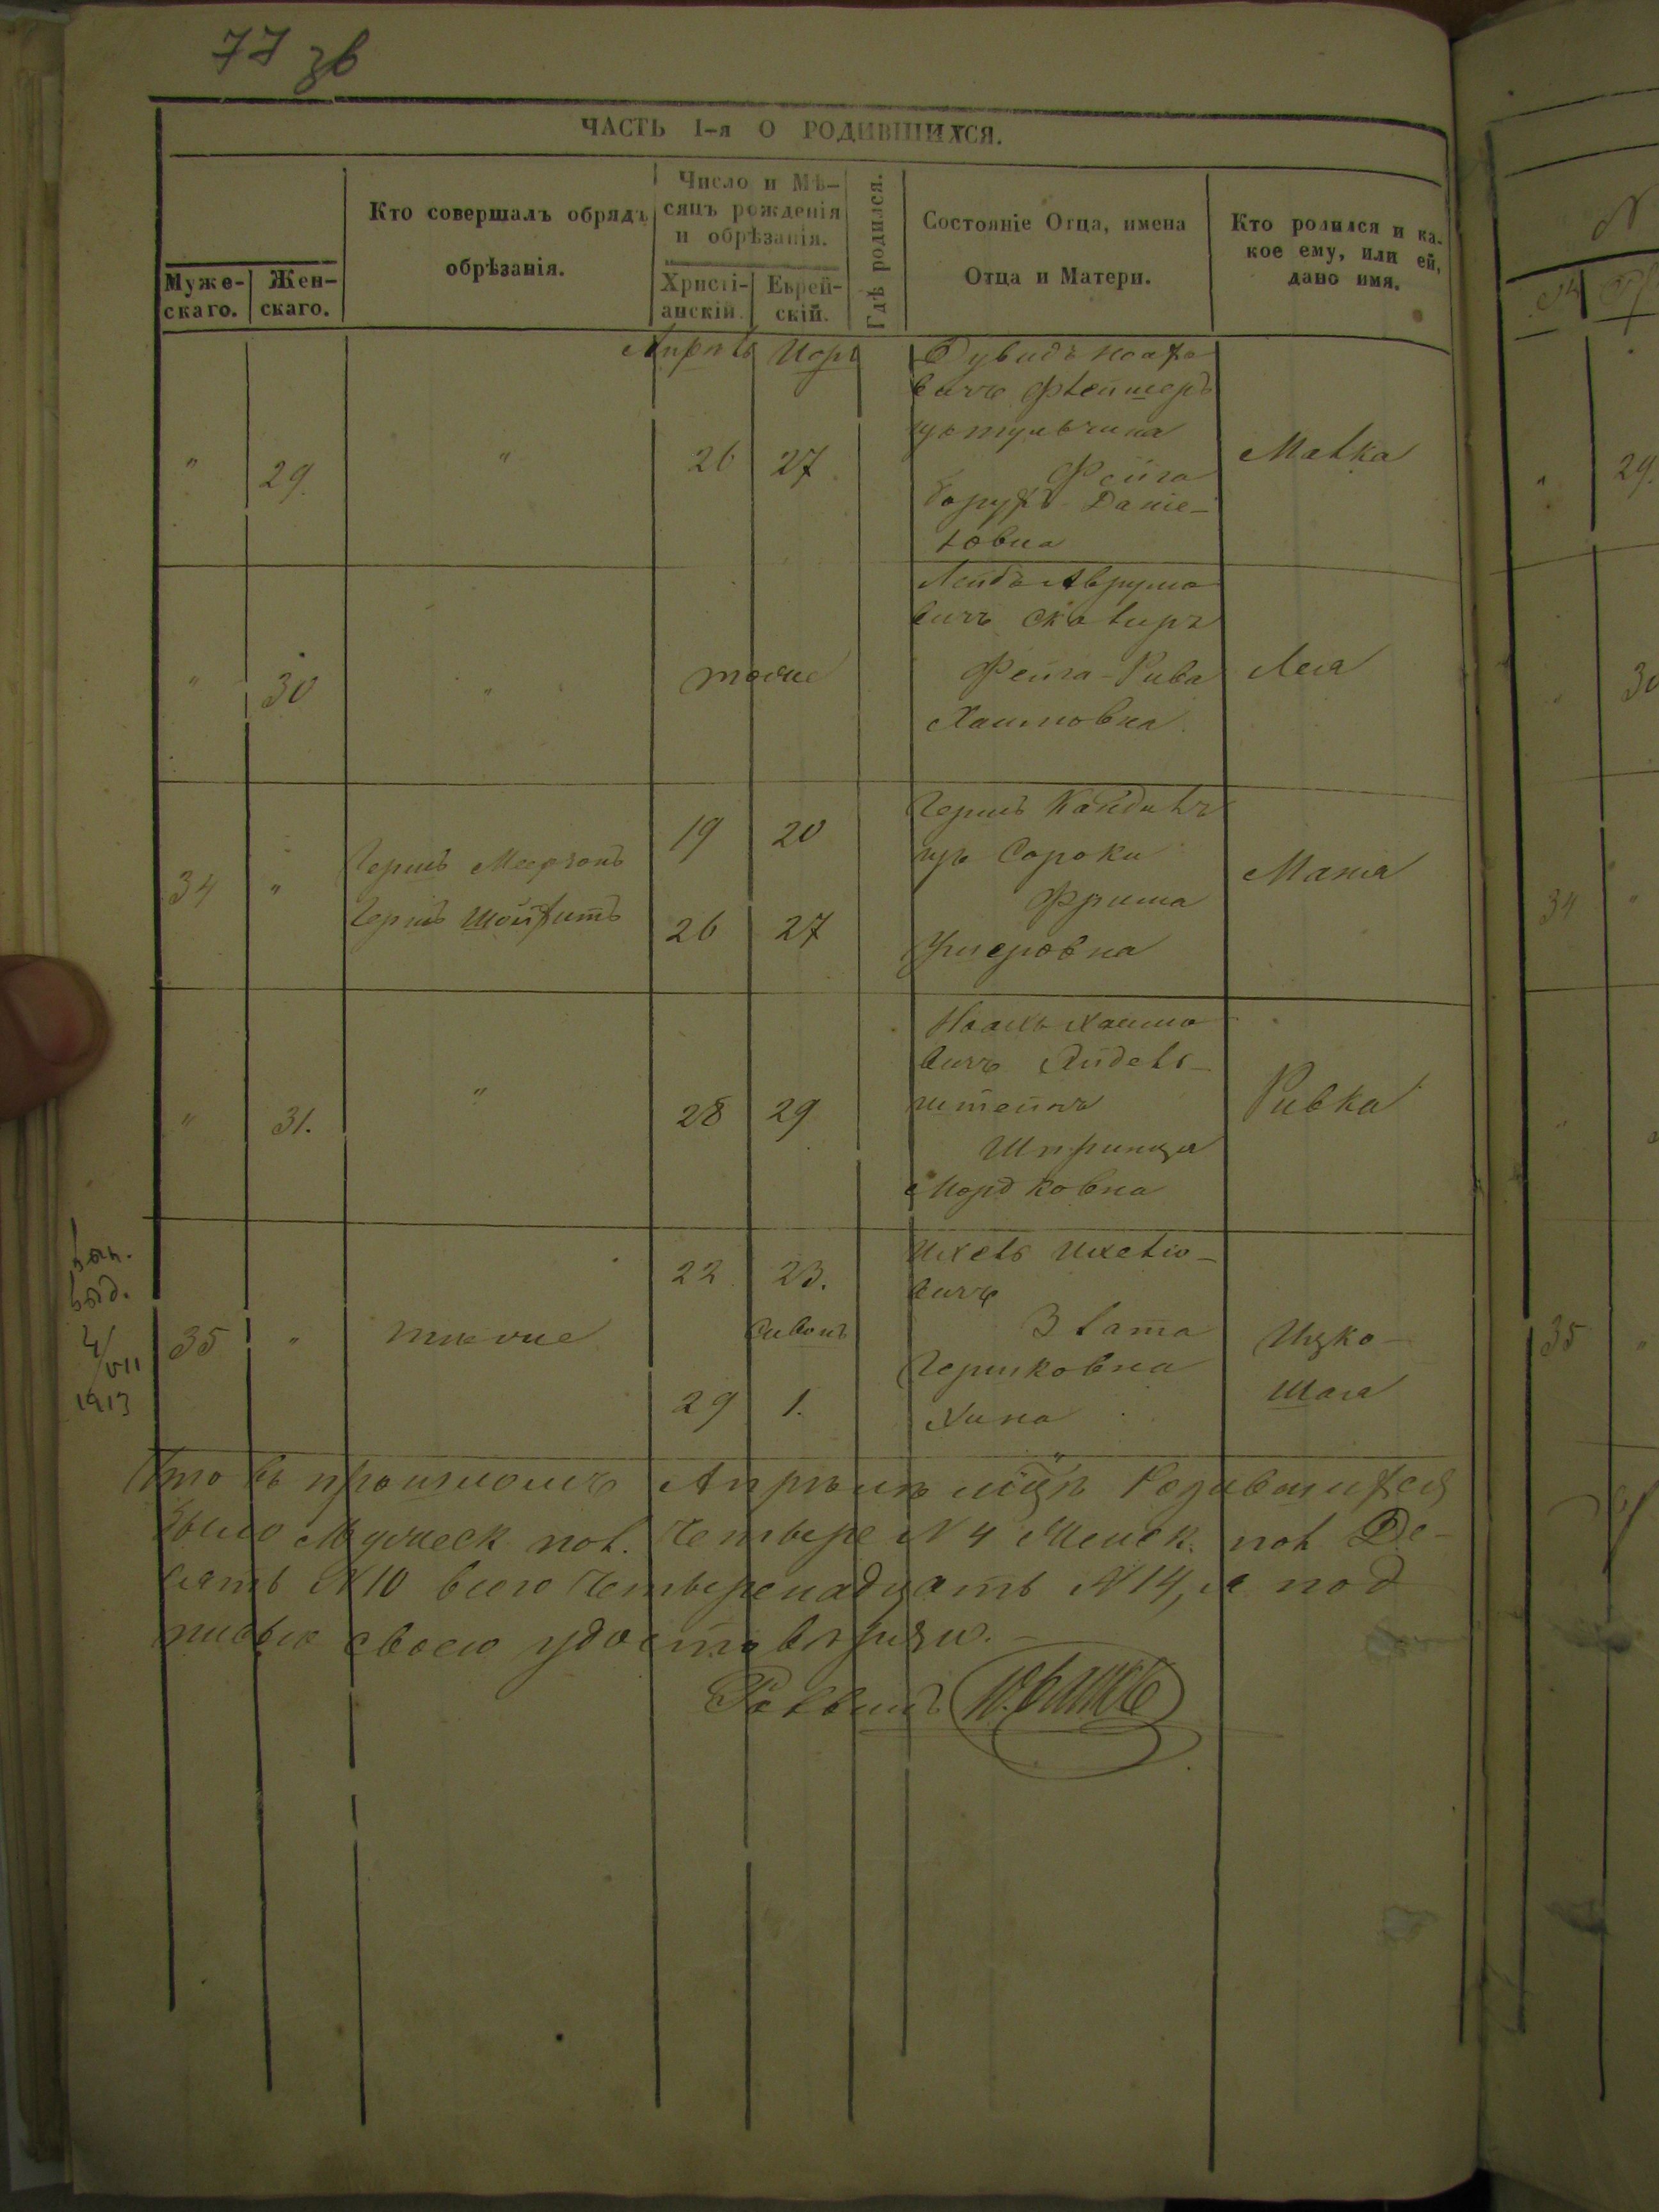 77 зв
ЧАСТЬ I-я О РОДИВШИХСЯ.
Муже-
скаго.
Жен-
скаго.
Кто совершалъ обрядъ
обрѣзанія.
Число и Мѣ-
сяцъ рожденія
и обрѣзанія.
Христі-
анскій.
Еврей-
скій.
Гдѣ родился.
Состояніе Отца, имена
Отца и Матери.
Кто родился и ка-
кое ему, или ей,
дано имя.
Апрѣль Иоръ
" 29. " 26 27
Дувидъ Ноахо
вичъ Флейшеръ
Фейга
Борухъ-Даніе-
ловна
Малка
" 30 " тоже
Лейбъ Аврумо
вичъ Скаляръ
Фейга-Рива
Хаимовна
Лея
34 "
Гершъ Меерзонъ
Гершъ Шойхитъ
19 20
26 27
Гершъ
Сороки
Фрима
Ушеровна
" 31. " 28 29
Ноахъ Хаимо
вичъ Эйдель-
штейнъ
Шпринца
Мордковна
Ривка
35 " тие же
22 23.
Сивонъ
29 1.
Ихель Ихелю-
вичъ
Злата
Гершковна
Хина
Ицко-
Шая
выд.
4/VII
1913
Что въ прошломъ Апрѣлѣ мцѣ Родившихся
было Мужеск пол. Четыре N 4 Женск. пол Де-
сять N 10 всего Четыренадцать N 14, я под
писью своею удостовѣряю.
Раввинъ
29.
30
34 "
35 "